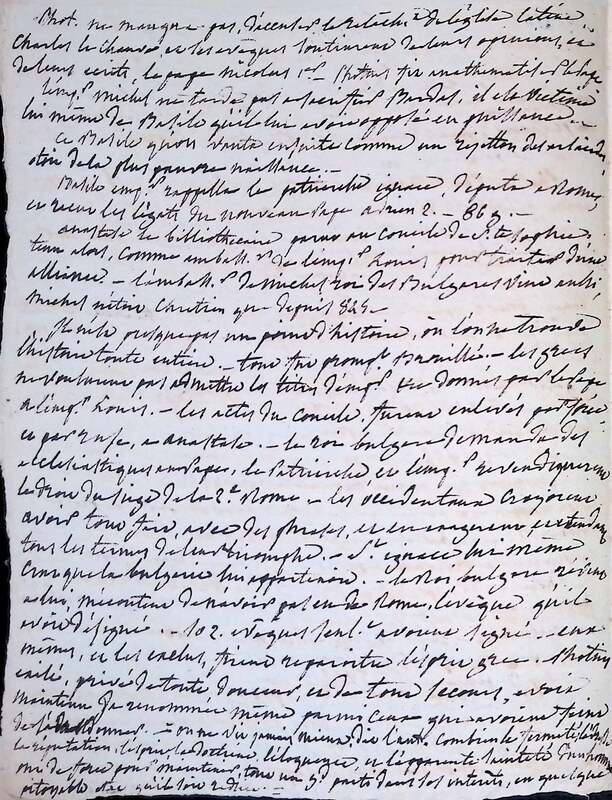 Phot. ne manqua pas d'accuser le relâchem.t de l'église latine.
Charles le Chauve, et les evêques soutinrent de leurs opinions, et
de leurs ecrits, le pape nicolas 1er. – Photius fit anathematiser le pape
l'emp.r michel ne tarda pas a sacrifier Bardas, il est la victime
lui même de Basile qu'il lui avoit opposé en puissance. –
Ce Basile qu'on vanta ensuite comme un rejetton des
étoit de la plus pauvre naissance. –
Basile emp.r rappella le patriarche ignace, députa a Rome,
et recut les légats du nouveau Pape adrien 2. – 869. –
anastase le bibliothécaire parut au concile de S.te Sophie.
tenu alors, comme ambass.r de l'emp.r Louis pour traiter d'une
alliance. – l'ambass.r de michel roi des Bulgares vint aussi,
michel n'étoit Chretien que depuis 845 –
Il n'est presque pas un point d'histoire, où l'on ne trouve
l'histoire toute entière. – tout fut prompt. Brouillé. – les grecs
ne voulurent pas admettre les titres d'emp.r donnés par le Pape
a l'emp.r Louis. – les actes du concile, furent enlevés par force,
et par ruse, a anastase. – le roi bulgare demanda des
ecclésiastiques au Pape, le Patriarche et l'emp.r revendiquerent
le droit du siège de la 2.e Rome – les occidentaux croyoient
avoir tout fait, avec des phrases, et en exagerant
tous les termes de leur triomphe. – S.t ignace lui même
crut que la bulgarie lui appartenoit. – le Roi bulgare revint
a lui, mécontent de n'avoir pas eu de Rome, l'évêque qu'il
avoit désigné. – 102. evêques seul.t avoient signé – eux
mêmes, et les exclus, firent reparoitre l'esprit grec. Photius
exilé, privé de toute douceur, et de tout secours, avoit
maintenu sa renommée même parmi ceux qui avoient
de l'abandonner. – on ne vit jamais mieux, dit l'aut. combien la fermeté,
la reputation, l'esprit, la doctrine, l'éloquence et l'apparente sainteté d'un homme
ont de force pour maintenir tout un g.d parti dans ses interêts, en quelque
pitoyable état qu'il soit reduit. –